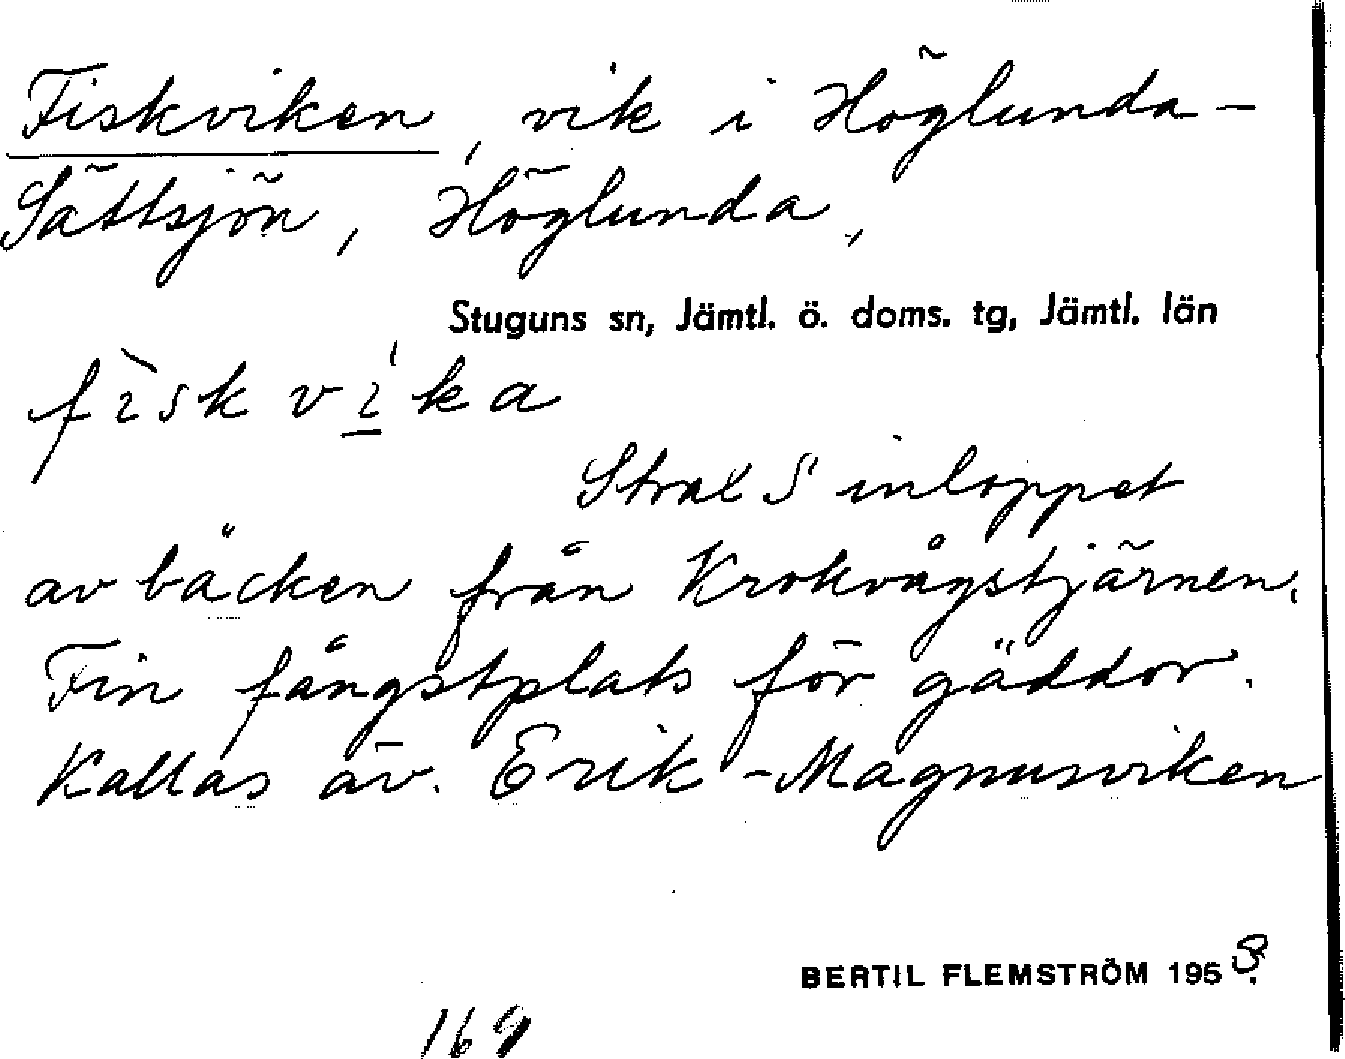 Fiskviken, vik i Höglunda-
Sättsjön, Höglunda,
Stuguns sn, Jämtl. ö. doms. tg, Jämtl. län
fìskvíka
Strax S inloppet
av bäcken från Krokvågstjärnen.
Fin fångstplats för gäddor.
Kallas äv. Erik-Magnusviken
BERTIL FLEMSTRÖM 1958.
169